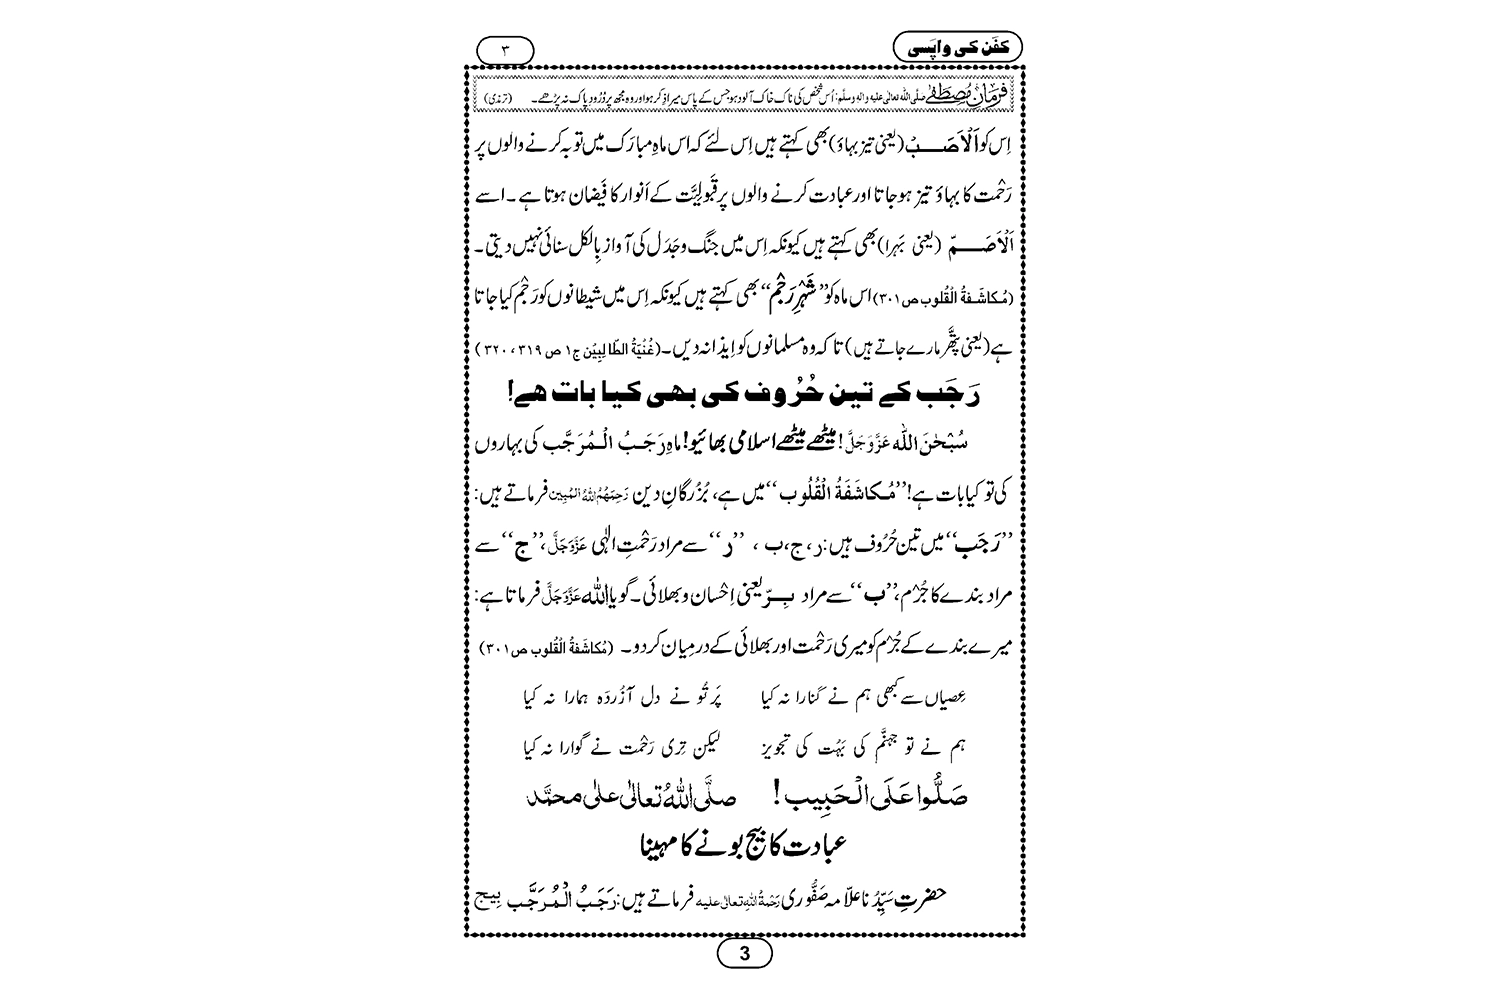 کفَن کی واپَسی
۳
فرمانِ مُصطَفٰے صلَّی اللہ تعالٰی علیہ والہٖ وسلَّم: اُس شخص کی ناک خاک آلود ہو جس کے پاس میرا ذِکر ہو اور وہ مجھ پر دُرُودِ پاک نہ پڑھے۔ (ترمذی)
اِس کو اَلْاَصَبّ (یعنی تیز بہاؤ) بھی کہتے ہیں اِس لئے کہ اس ماہِ مبارَک میں توبہ کرنے والوں پر
رَحْمت کا بہاؤ تیز ہوجاتا اور عبادت کرنے والوں پر قَبولِیَّت کے اَنوار کا فَیضان ہوتا ہے۔ اسے
اَلْاَصَمّ (یعنی بَہرا) بھی کہتے ہیں کیونکہ اِس میں جنگ وجَدَل کی آواز بِالکل سنائی نہیں دیتی۔
(مُکاشَفۃُ الْقُلوب ص۳۰۱) اس ماہ کو ’’شَہْرِ رَجَم‘‘ بھی کہتے ہیں کیونکہ اِس میں شیطانوں کو رَجْم کیا جاتا
ہے (یعنی پتھَّر مارے جاتے ہیں) تاکہ وہ مسلمانوں کو اِیذا نہ دیں۔ (غُنْیَۃُ الطّالِبِیْن ج۱ ص ۳۱۹، ۳۲۰)
رَجَب کے تین حُرُوف کی بھی کیا بات ھے!
سُبْحٰنَ اللہ عَزَّوَجَلَّ! میٹھے میٹھے اسلامی بھائیو! ماہِ رَجَبُ الْمُرَجَّب کی بہاروں
کی تو کیا بات ہے! ’’مُکاشَفَۃُ الْقُلُوب‘‘ میں ہے، بُزُرگانِ دین رَحِمَہُمُ اللہُ الْمُبِین فرماتے ہیں:
’’رَجَب‘‘ میں تین حُرُوف ہیں: ر، ج، ب ، ’’ر‘‘ سے مراد رَحْمتِ الٰہی عَزَّوَجَلَّ، ’’ج‘‘ سے
مراد بندے کا جُرْم، ’’ب‘‘ سے مراد بِرّ یعنی اِحْسان و بھلائی۔ گویا اللہ عَزَّوَجَلَّ فرماتا ہے:
میرے بندے کے جُرْم کو میری رَحْمت اور بھلائی کے درمیان کردو۔ (مُکاشَفۃُ الْقُلوب ص۳۰۱)
عِصیاں سے کبھی ہم نے کَنارا نہ کیا پَر تُو نے دل آزُردَہ ہمارا نہ کیا
ہم نے تو جہنَّم کی بَہُت کی تجویز لیکن تِری رَحْمت نے گوارا نہ کیا
صَلُّوا عَلَی الْحَبِیب! صلَّی اللہُ تعالٰی علٰی محمَّد
عبادت کا بیج بونے کا مہینا
حضرتِ سَیِّدُنا علّامہ صَفُّوری رَحْمۃُ اللہِ تعالٰی علیہ فرماتے ہیں: رَجَبُ الْمُرَجَّب بیج
3